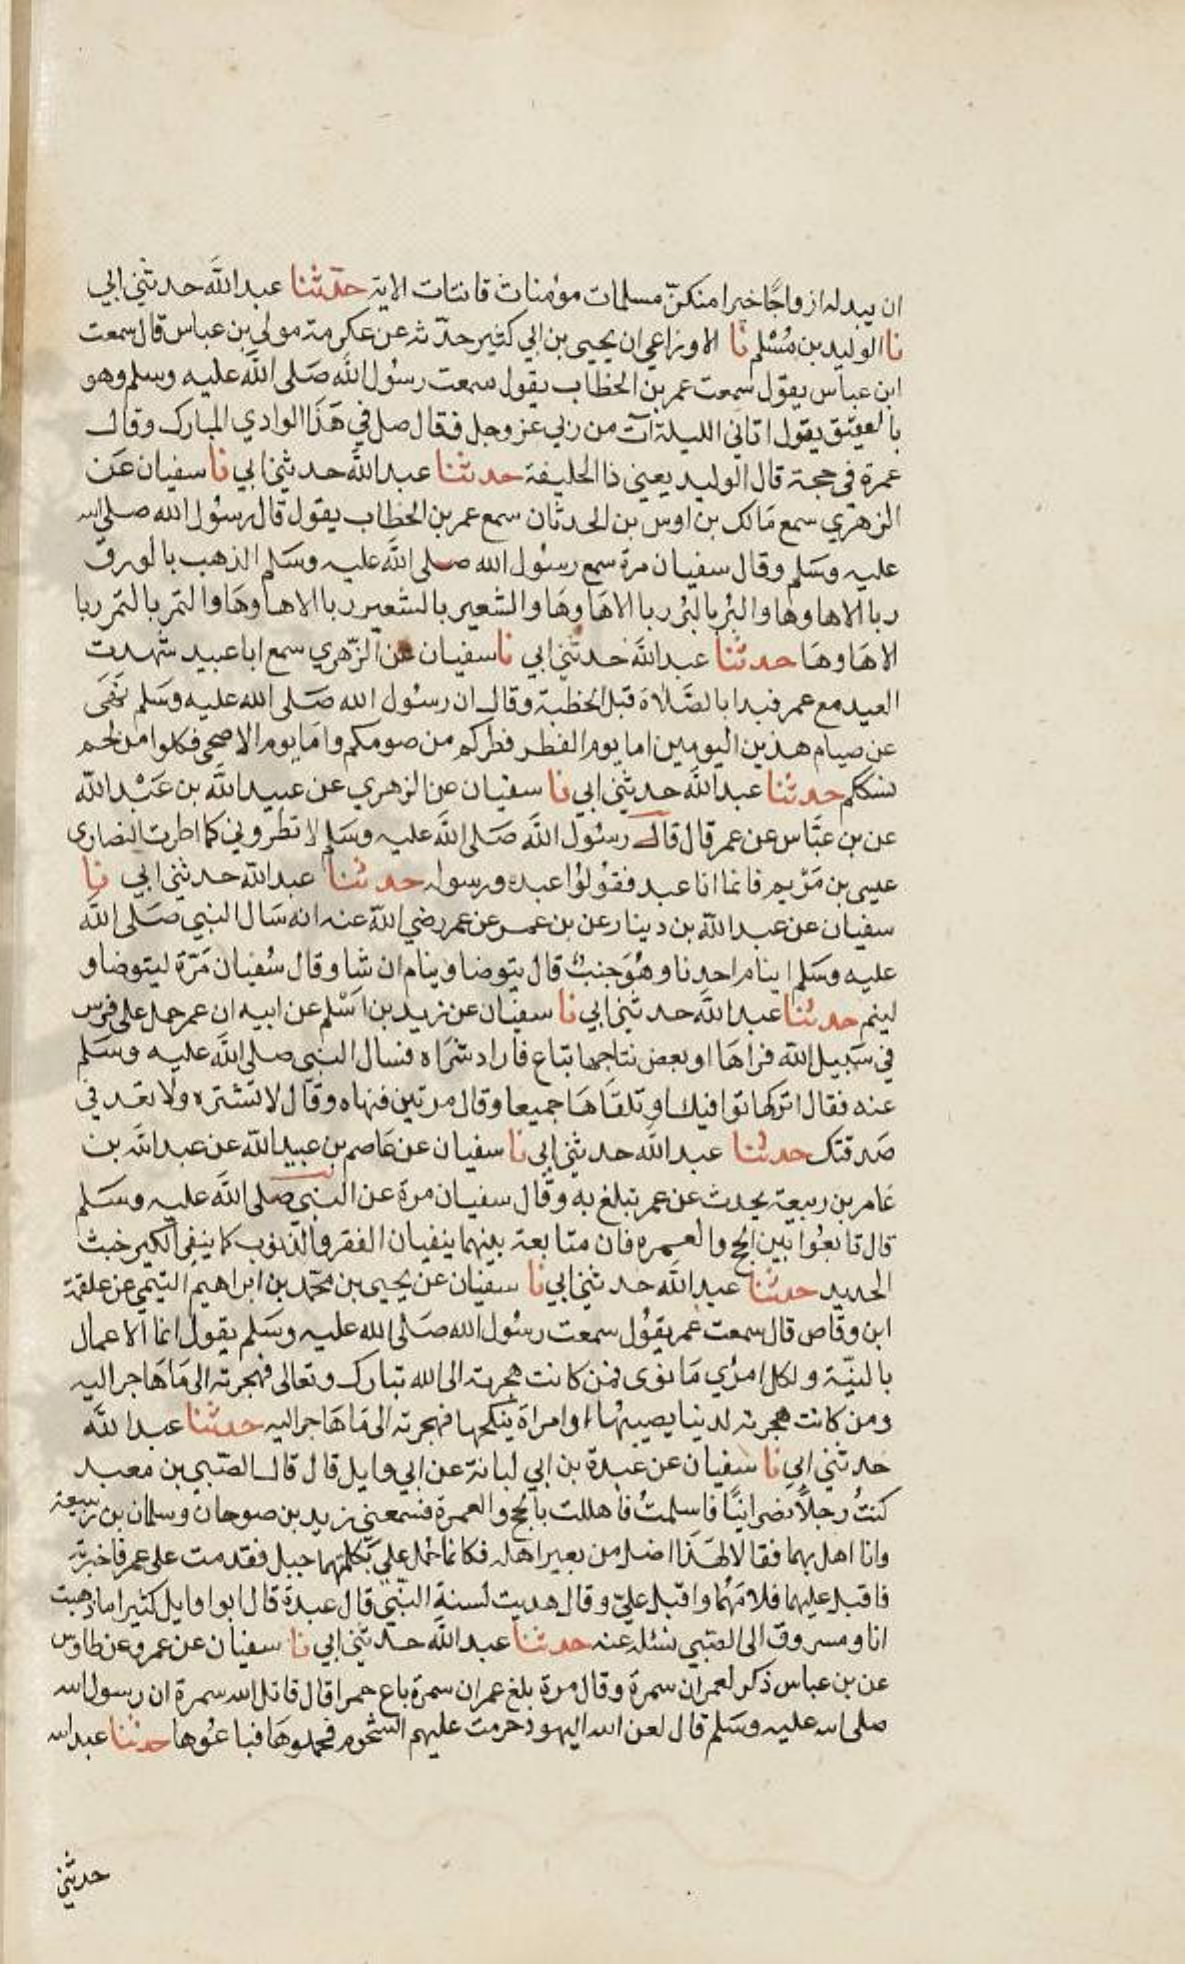 ان يبدله ازواجًا خيرا منكنّ مسلمات مؤمنات قانتات الاية حدّثنا عبد الله حدثني ابي
نا الوليد بن مُسْلم نا الاوزاعي ان يحيى بن ابي كثير حدّثه عن عكرمة مولى بن عباس قال سمعت
ابن عباس يقول سمعت عمر بن الخطاب يقول سمعت رسُول الله صَلى الله عليه وسلم وهو
بالعقيق يقول اتاني الليلة آت من ربي عز وجل فقال صل في هَذَا الوادي المبارك وقال
عمرة في حجة قال الوليد يعني ذا الحليفة حدثنا عبد الله حدثني ابي نا سفيان عَن
الزهري سمع مَالك بن اوس بن الحدثان سمع عمر بن الخطاب يقول قال رسُول الله صلى الله
عليه وسَلم وقال سفيان مرة سمع رسُول الله صلى الله عليه وسَلم الذهب بالورق
ربا الا ها وها والبُر بالبُر ربا الا هَا وهَا والشعير بالشعير ربا الا ها وهَا والتمر بالتمر ربا
الا هَا وهَا حدثنا عبد الله حدثني ابي نا سفيان عن الزّهري سمع ابا عبيد شهدت
العيد مع عمر فبدا بالصَّلاة قبل الخطبة وقال ان رسُول الله صَلى الله عليه وسَلم نهَى
عن صيام هذين اليومين اما يوم الفطر ففطركم من صومكم وامَا يوم الاضحى فكلوا من لحم
نسككم حدثنا عبد الله حدثني ابي نا سفيان عن الزهري عن عبيد الله بن عَبْد الله
عن بن عبَّاس عن عمر قال قال رسُول الله صَلى الله عليه وسَلم لا تطروني كما اطرت النصارى
عيسى بن مَرْيم فانما انا عبد فقولوُا عبده ورسوله حدثنا عبد الله حدثني ابي نا
سفيان عن عبد الله بن دينار عن بن عمر عن عمر رضي الله عنه انه سَال النبي صَلى الله
عليه وسَلم اينام احدنا وهُوَ جنبٌ قال يتوضا وينام ان شا وقال سُفيان مَرّة ليتوضا و
لينم حدثنا عبد الله حدثني ابي نا سفيان عن زيد بن اسْلم عن ابيه ان عمر حمل على فرس
في سَبيل الله فراهَا او بعض نتاجها يباع فاراد شرَاه فسال النبي صلى الله عليه وسَلم
عنه فقال اتركها توافيك او تلقَاهَا جميعا وقال مرتين فنهاه وقال لا تشتره ولا تعد في
صَدقتك حدثنا عبد الله حدثني ابي نا سفيان عن عَاصم بن عبيد الله عن عبد الله بن
عَامر بن ربيعة يحدث عن عمر يبلغ به وقال سفيان مرة عن النبي صلى الله عليه وسَلم
قال تابعُوا بين الحج والعمره فان متابعة بينهما ينفيان الفقر والذنوب كما ينفي الكير خبث
الحديد حدثنا عبد الله حدثني ابي نا سفيان عن يحيى بن محمّد بن ابراهيم التيمي عن علقمة
ابن وقاص قال سمعت عُمر يقوُل سمعت رسُول الله صَلى الله عليه وسَلم يقول انما الاعمال
بالنيّة ولكل امرُي مَا نوى فمن كانت هجرته الى الله تبارك وتعالى فهجرته الى مَا هَاجر اليه
ومن كانت هجرته لدنيا يصيبها او امراة ينكحها فهجرته الى مَا هَاجر اليه حدثنا عبد الله
حَدثني ابي نا سفيان عن عَبدة بن ابي لبابة عن ابي وايل قال قال الصّبي بن معبد
كنتُ رجلاً نصرانيًّا فاسلمتُ فاهللت بالحج والعمرة فسمعني زيد بن صوحان وسلمان بن ربيعة
وانا اهل بهما فقالا لهَذَا اضل من بعير اهله فكانما حُمل علي بكلمتهما جبل فقدمت على عمر فاخبرته
فاقبل عليهما فلامَهُما واقبل عليّ وقال هديت لسنة النبي قال عبدة قال ابو وايل كثيرا ما ذهبت
انا ومسروق الى الصّبي نسئله عنه حدثنا عبد الله حدثني ابي نا سفيان عن عمرو عن طاوس
عن بن عباس ذكر لعمر ان سمرة وقال مرة بلغ عمر ان سمرة باع خمرا قال قاتل الله سمرة ان رسول الله
صلى الله عليه وسَلم قال لعن الله اليهود حرمت عليهم الشحوم فجملوهَا فباعُوها حدثنا عبد الله
حدثني